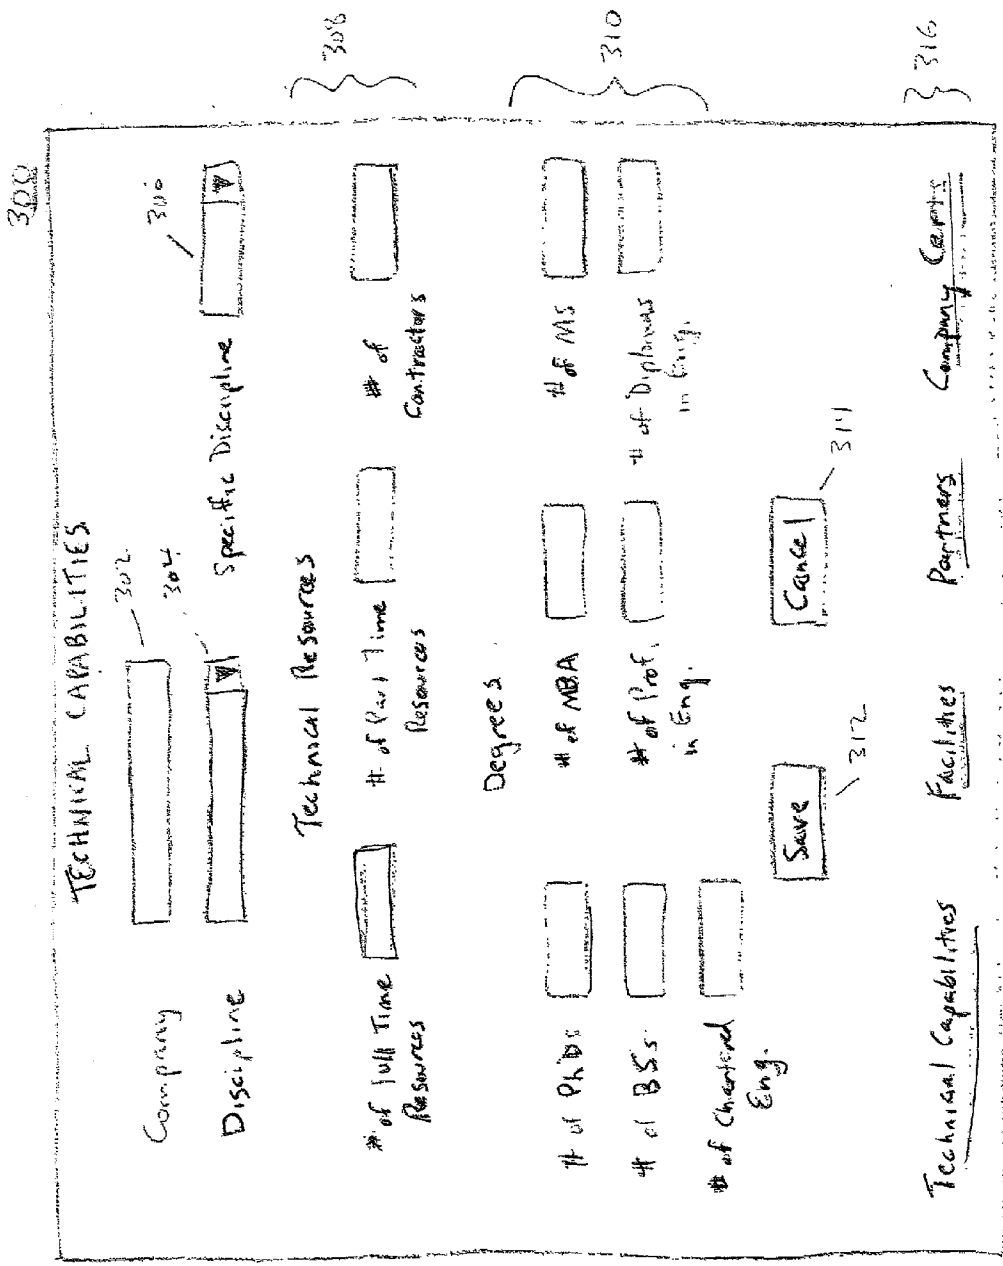 300
TECHNICAL CAPABILITIES
Company
302
304
Discipline
Specific Discipline
306
Technical Resources
308
# of Full Time
Resources
# of Part Time
Resources
# of
Contractors
Degrees
310
# of PhDs
# of MBA
# of MS
# of BSs
# of Prof.
in Eng.
# of Diplomas
in Eng.
# of Chartered
Eng.
Save
Cancel
312
314
Technical Capabilities
Facilities
Partners
Company Certs
316